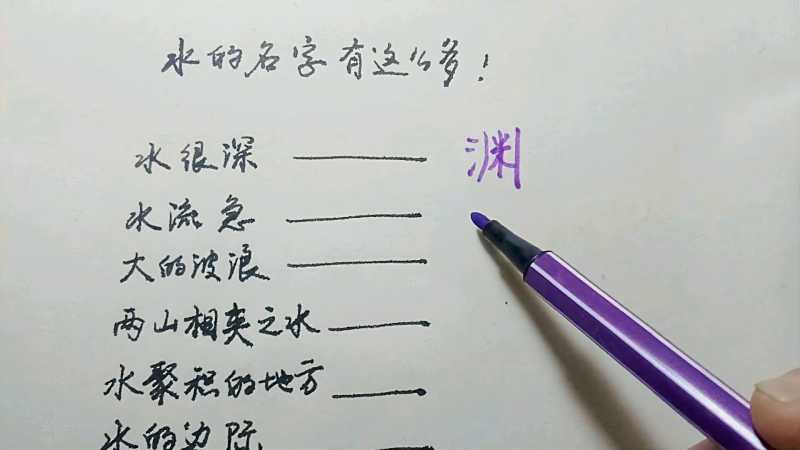 水的名字有这么多!
水很深 —— 渊
水流急 ——
大的波浪 ——
两山相夹之水 ——
水聚积的地方 ——
水的边际 ——